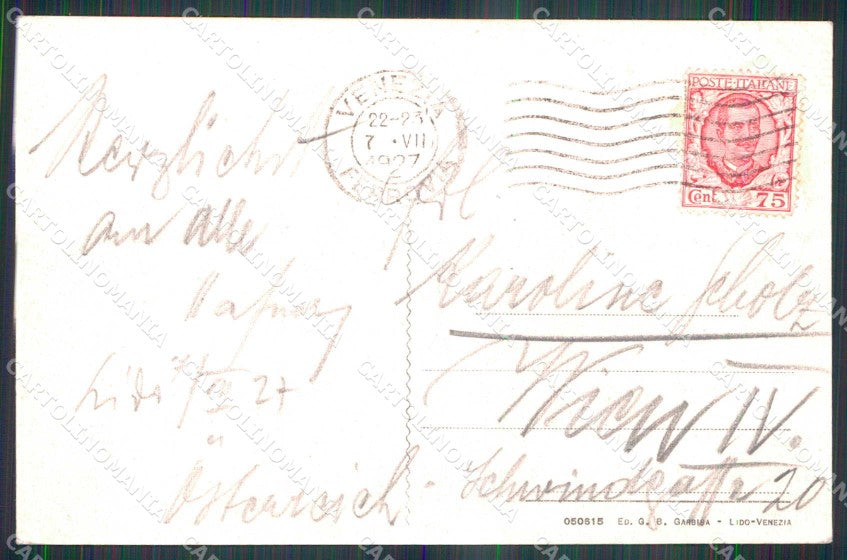 Herzlichst
an alle
Lido 7/VII 27
Österreich
VENEZIA
22-23
7 · VII
1927
FERROVIA
POSTE · ITALIANE
Cent. 75
Frl
Karoline Scholz
Wien IV.
Schwindgasse 20
050615 ED. G. B. GARBISA - LIDO-VENEZIA
CARTOLINOMANIA